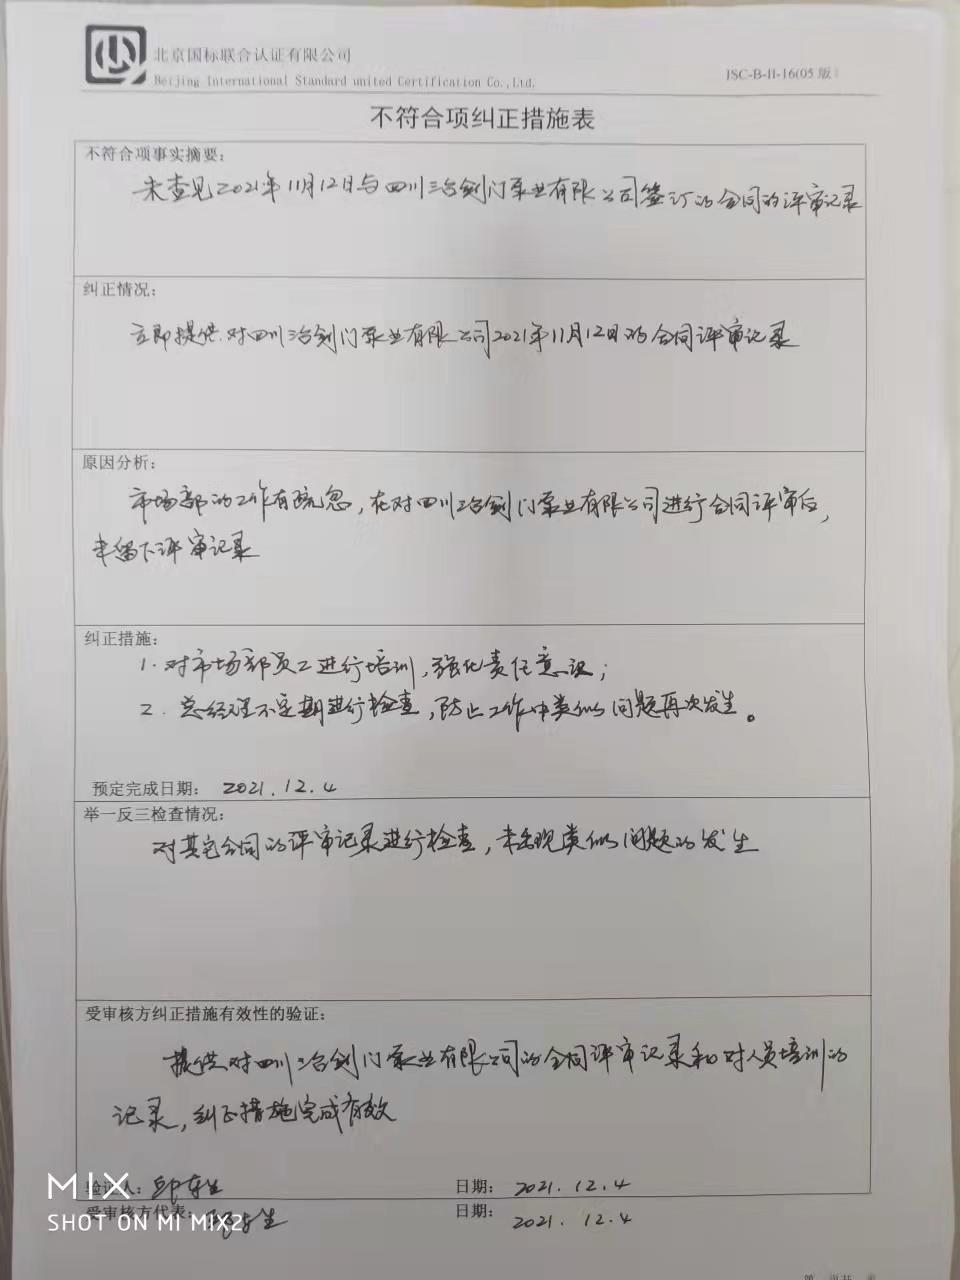 北京国标联合认证有限公司
Beijing International Standard united Certification Co.,Ltd.
ISC-B-II-16(05版)
不符合项纠正措施表
不符合项事实摘要：
未查见2021年11月12日与四川三台剑门泵业有限公司签订的合同的评审记录
纠正情况：
立即提供对四川三台剑门泵业有限公司2021年11月12日的合同评审记录
原因分析：
市场部的工作有疏忽，在对四川三台剑门泵业有限公司进行合同评审后，
未留下评审记录
纠正措施：
1. 对市场部员工进行培训，强化责任意识；
2. 总经理不定期进行检查，防止工作中类似问题再次发生。
预定完成日期： 2021.12.4
举一反三检查情况：
对其它合同的评审记录进行检查，未出现类似问题的发生
受审核方纠正措施有效性的验证：
提供对四川三台剑门泵业有限公司的合同评审记录和对人员培训的
记录，纠正措施完成有效
验证人： 日期： 2021.12.4
受审核方代表： 日期： 2021.12.4
MIX
SHOT ON MI MIX2